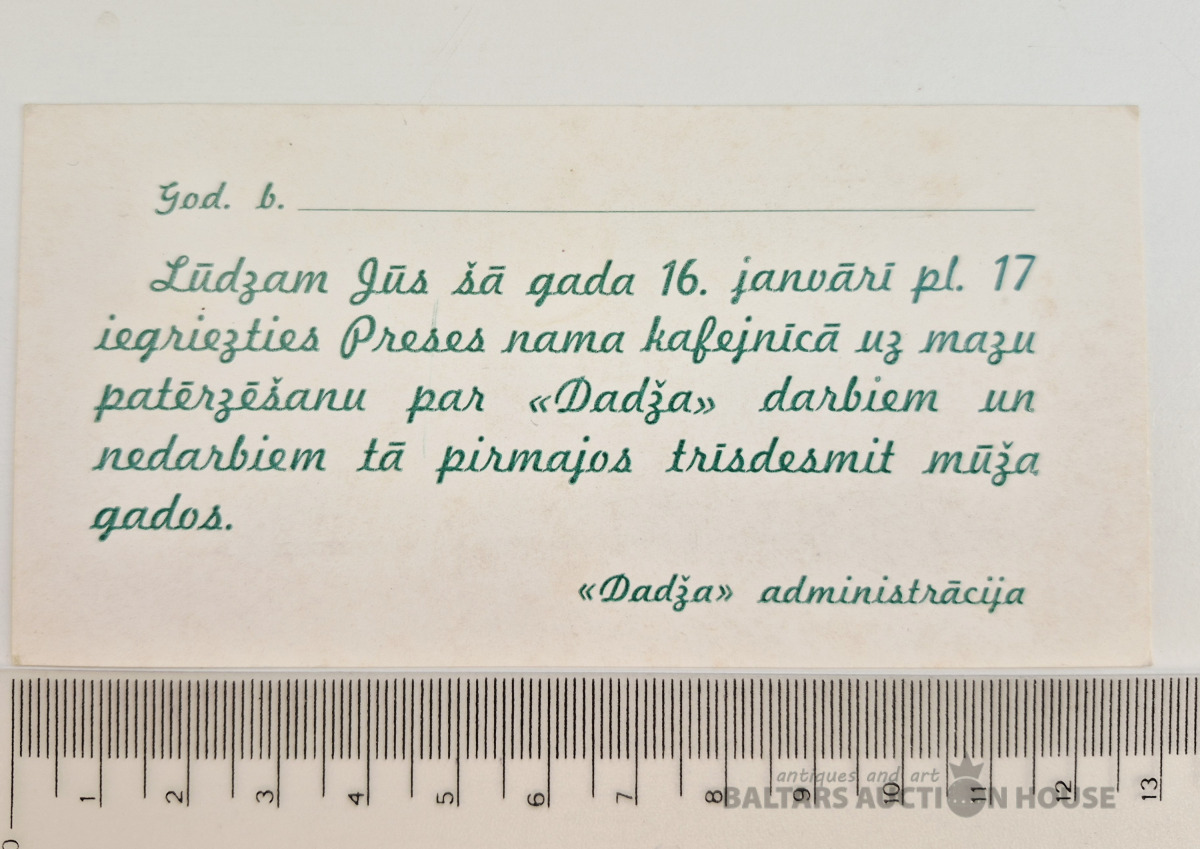 God. b.
Lūdzam Jūs šā gada 16. janvārī pl. 17
iegriezties Preses nama kafejnīcā uz mazu
patērzēšanu par «Dadža» darbiem un
nedarbiem tā pirmajos trīsdesmit mūža
gados.
«Dadža» administrācija
0 1 2 3 4 5 6 7 8 9 10 11 12 13
antiques and art
BALTARS AUCTION HOUSE